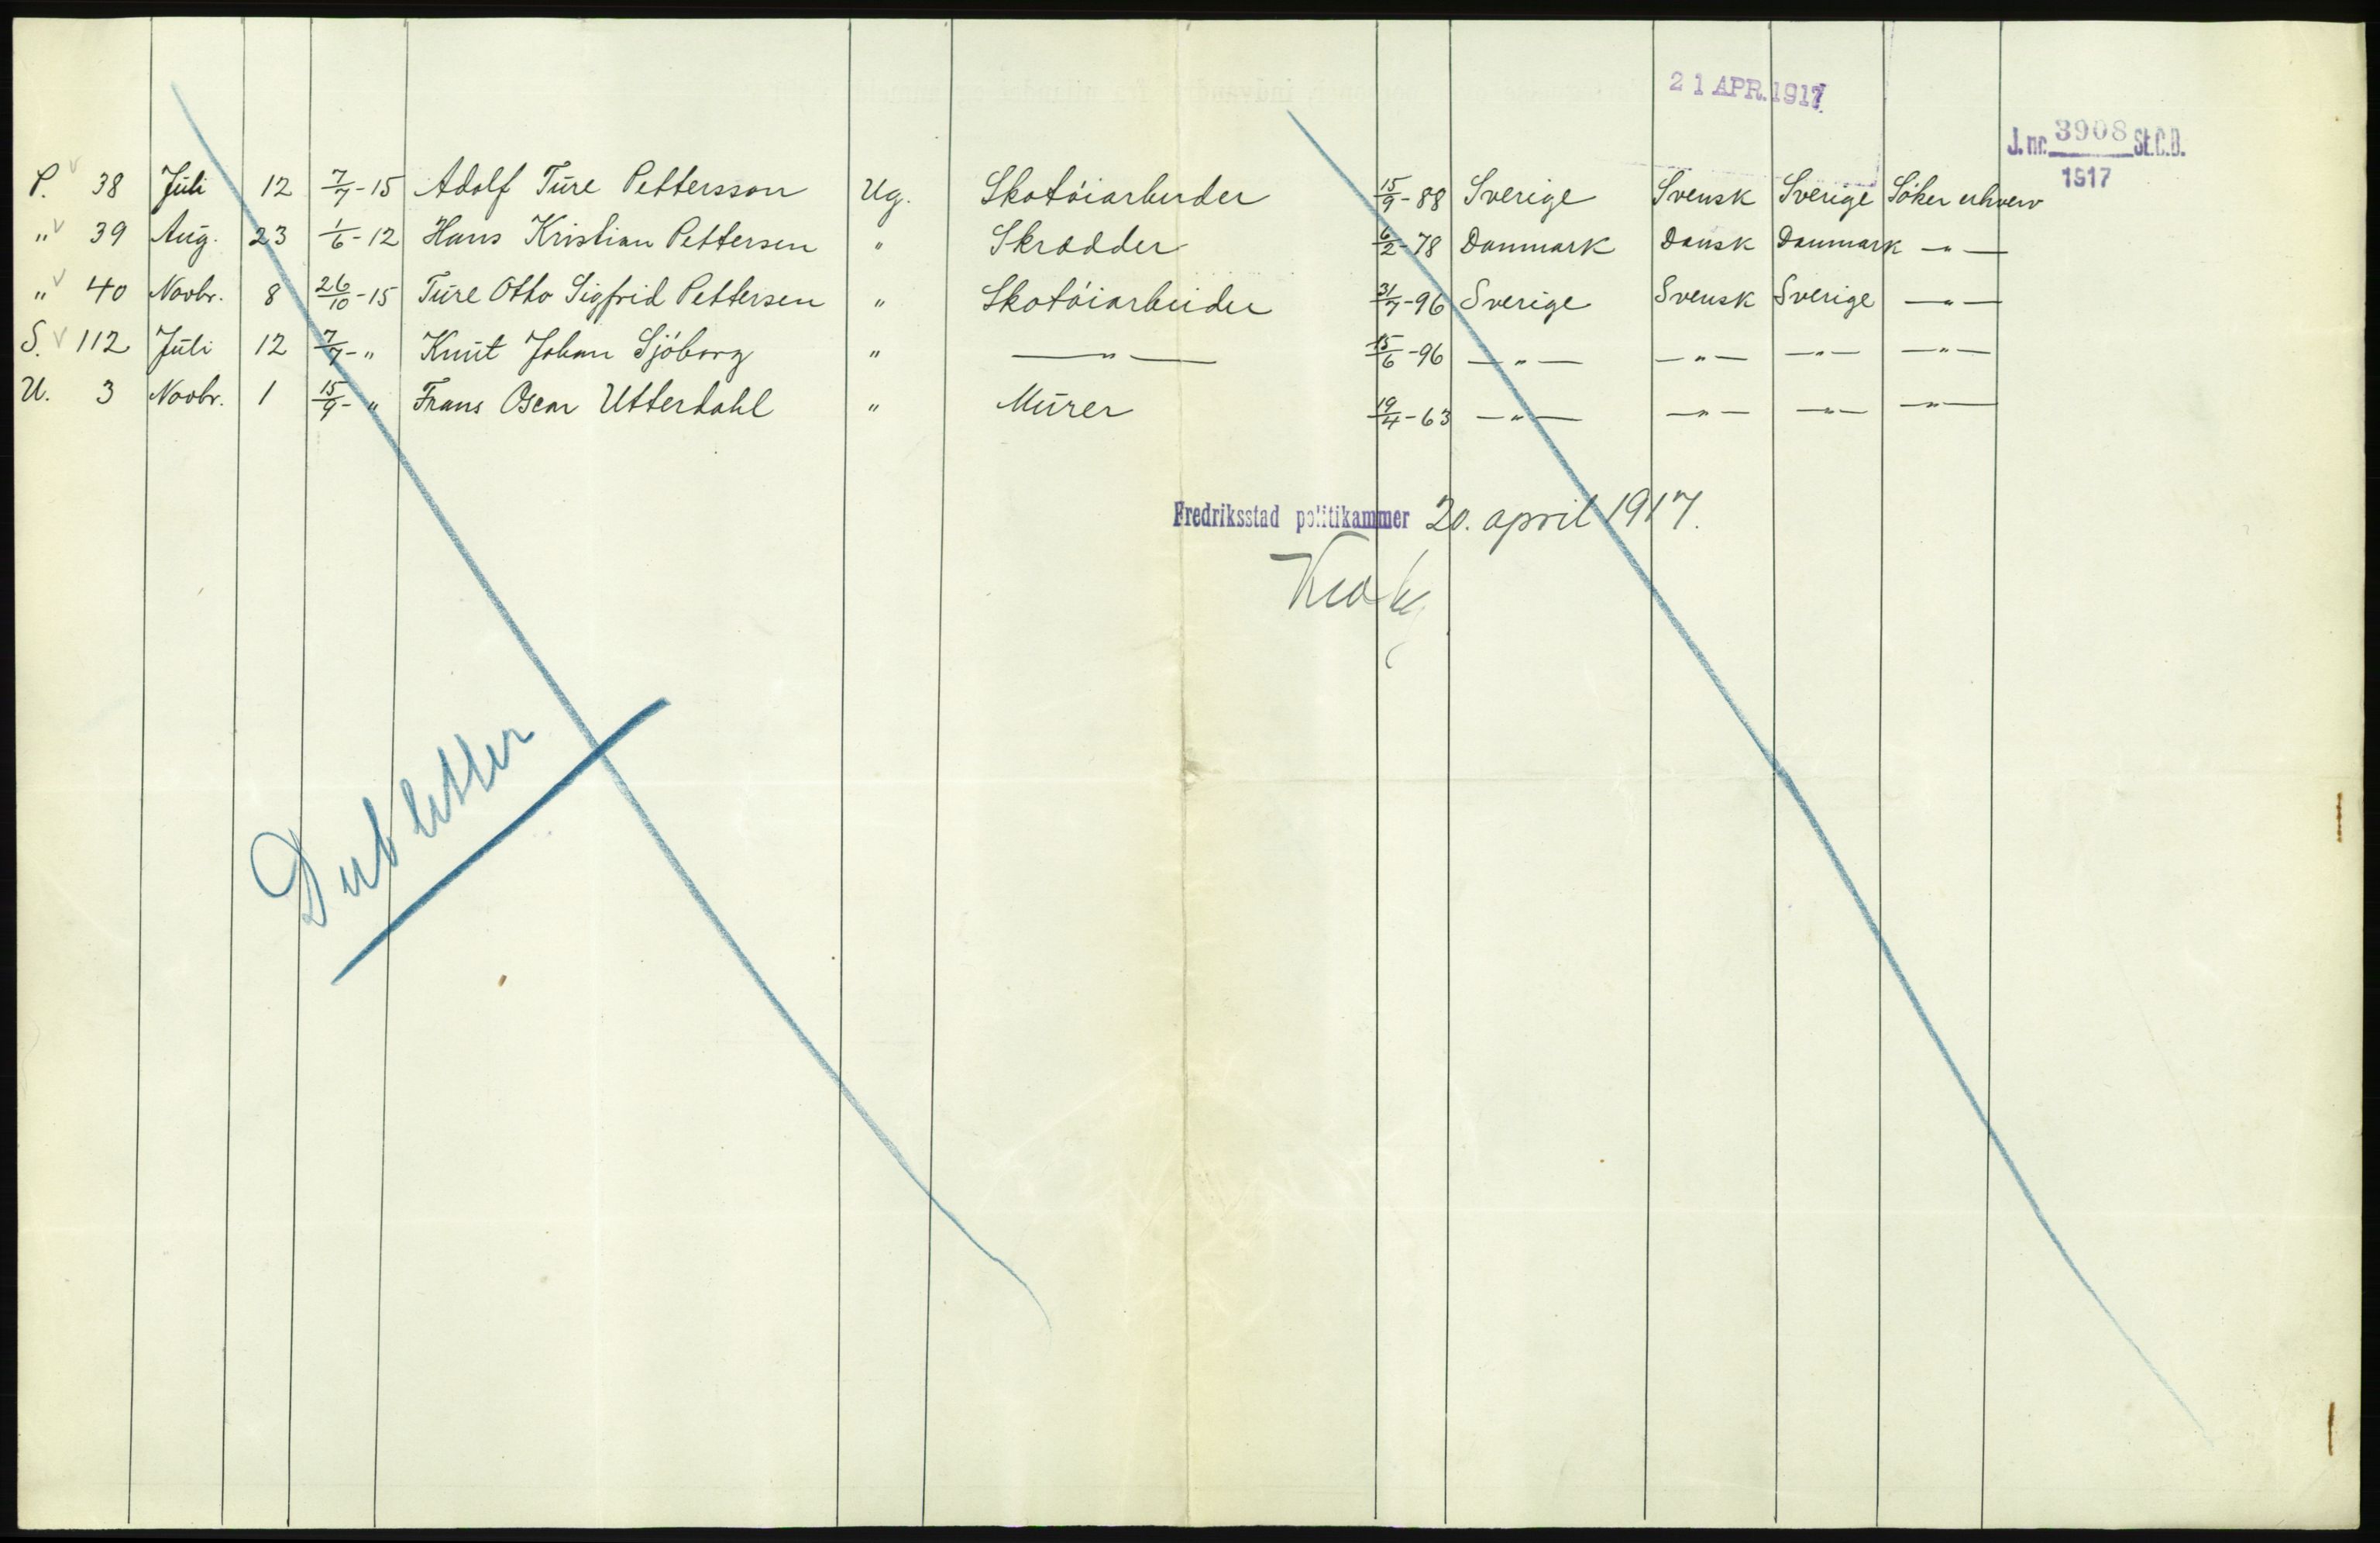 21 APR. 1917
J. nr. 3908 St.C.B.
1917
P. 38 Juli 12 7/7-15 Adolf Ture Pettersson Ug. Skotöiarbeider 15/9-88 Sverige Svensk Sverige Söker erhverv
" 39 Aug. 23 1/6-12 Hans Kristian Pettersen " Skrædder 6/2-78 Danmark Dansk Danmark —"—
" 40 Novbr. 8 26/10-15 Ture Otto Sigfrid Pettersen " Skotöiarbeider 31/7-96 Sverige Svensk Sverige —"—
S. 112 Juli 12 7/7-" Knut Johan Sjöborg " —"— 15/6-96 —"— —"— —"— —"—
U. 3 Novbr. 1 15/9-" Frans Oscar Utterdahl " Murer 19/4-63 —"— —"— —"— —"—
Fredriksstad politikammer 20. april 1917.
Dubletter